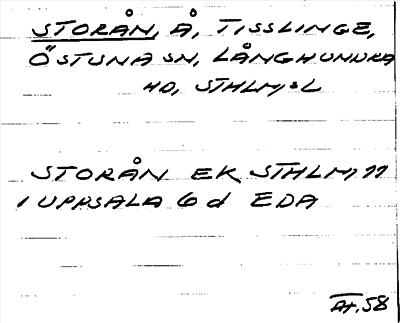 STORÅN, Å, TISSLINGE,
ÖSTUNA SN, LÅNGHUNDRA
HD, STHLMSL
STORÅN EK STHLM 77
1 UPPSALA 6 d EDA
AH. 58